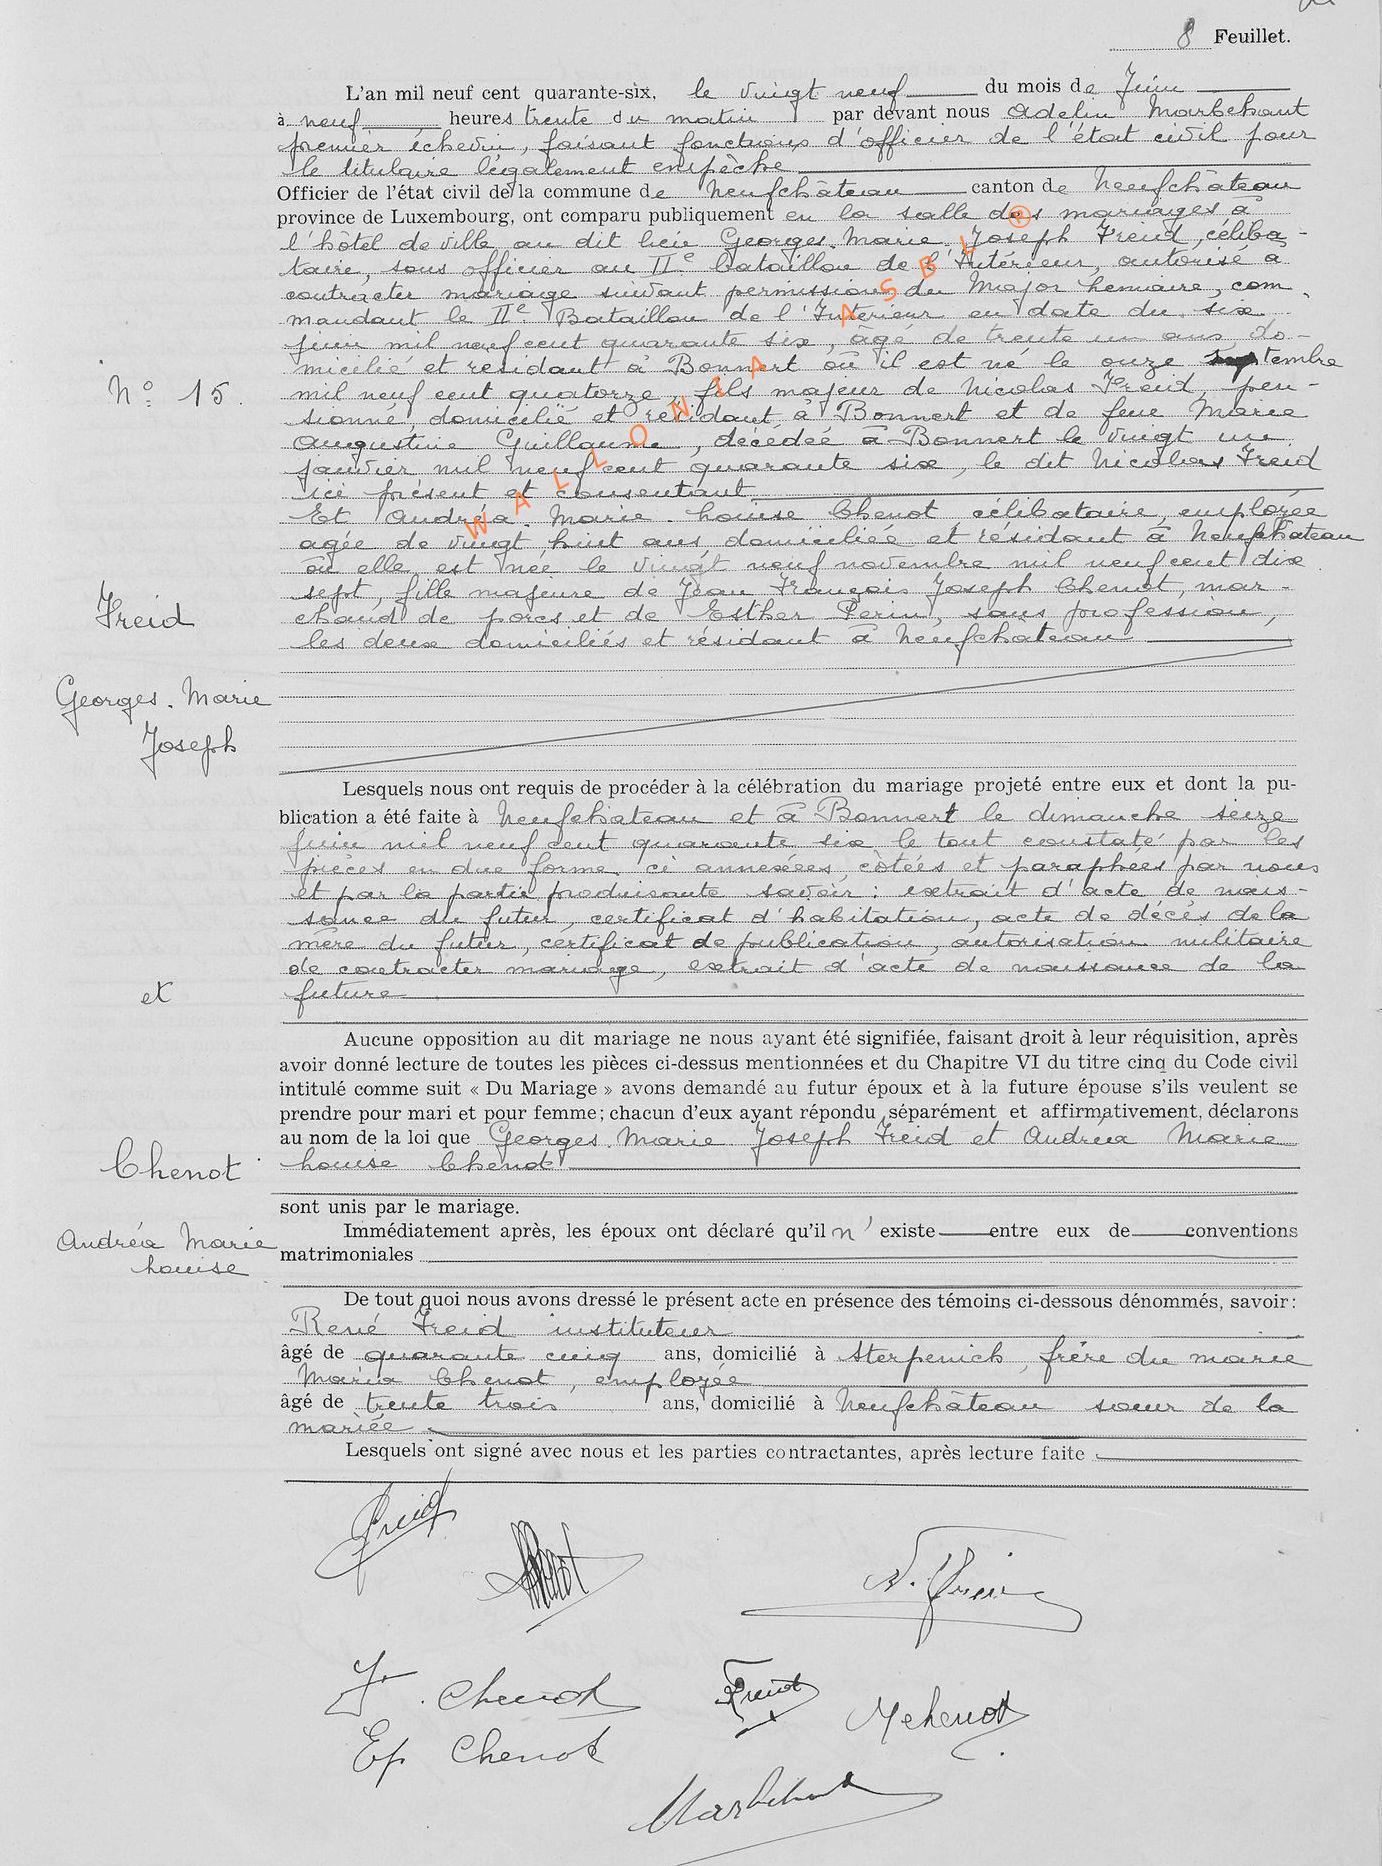 8 Feuillet.
L'an mil neuf cent quarante-six, le vingt neuf du mois de Juin
à neuf heures trente du matin par devant nous Adelin Marbehant
premier échevin, faisant fonctions d'officier de l'état civil pour
le titulaire légalement empêché
Officier de l'état civil de la commune de Neufchâteau canton de Neufchâteau
province de Luxembourg, ont comparu publiquement en la salle des mariages à
l'hôtel de ville au dit lieu Georges. Marie. Joseph Freid, céliba-
taire, sous officier au IIe bataillon de l'Intérieur, autorisé à
contracter mariage suivant permission du Major Lemaire, com
mandant le IIe Bataillon de l'Intérieur en date du six
juin mil neuf cent quarante six, âgé de trente un ans, do-
micilié et résidant à Bonnert où il est né le onze septembre
N° 15.
mil neuf cent quatorze, fils majeur de Nicolas Freid, pen-
sionné, domicilié et résidant à Bonnert et de feue Marie
Augustine Guillaume, décédée à Bonnert le vingt un
janvier mil neuf cent quarante six, le dit Nicolas Freid
ici présent et consentant
Et Andréa. Marie. Louise Chenot, célibataire, employée
agée de vingt huit ans domiciliée et résidant à Neufchateau
où elle est née le vingt neuf novembre mil neuf cent dix
sept, fille majeure de Jean François Joseph Chenot, mar-
chand de porcs et de Esther Perin, sans profession,
les deux domiciliés et résidant à Neufchateau
Freid
Georges. Marie
Joseph
Lesquels nous ont requis de procéder à la célébration du mariage projeté entre eux et dont la pu-
blication a été faite à Neufchateau et à Bonnert le dimanche seize
juin mil neuf cent quarante six le tout constaté par les
pièces en due forme ci annexées, côtées et paraphees par nous
et par la partie produisante savoir: extrait d'acte de nais-
sance du futur, certificat d'habitation, acte de décès de la
mère du futur, certificat de publication, autorisation militaire
de contracter mariage, extrait d'acte de naissance de la
future
et
Aucune opposition au dit mariage ne nous ayant été signifiée, faisant droit à leur réquisition, après
avoir donné lecture de toutes les pièces ci-dessus mentionnées et du Chapitre VI du titre cinq du Code civil
intitulé comme suit « Du Mariage » avons demandé au futur époux et à la future épouse s'ils veulent se
prendre pour mari et pour femme; chacun d'eux ayant répondu séparément et affirmativement, déclarons
au nom de la loi que Georges. Marie Joseph Freid et Andréa Marie
Louise Chenot
Chenot
sont unis par le mariage.
Immédiatement après, les époux ont déclaré qu'il n'existe entre eux de conventions
matrimoniales
Andréa Marie
Louise
De tout quoi nous avons dressé le présent acte en présence des témoins ci-dessous dénommés, savoir:
René Freid instituteur
âgé de quarante cinq ans, domicilié à Sterpenich, frère du marié
Maria Chenot, employée
âgé de trente trois ans, domicilié à Neufchâteau sœur de la
mariée
Lesquels ont signé avec nous et les parties contractantes, après lecture faite
Freid
AChenot
N. Freid
J. Chenot
Freid
MChenot
Ep Chenot
Marbehant
WALLONIA ASBL ®